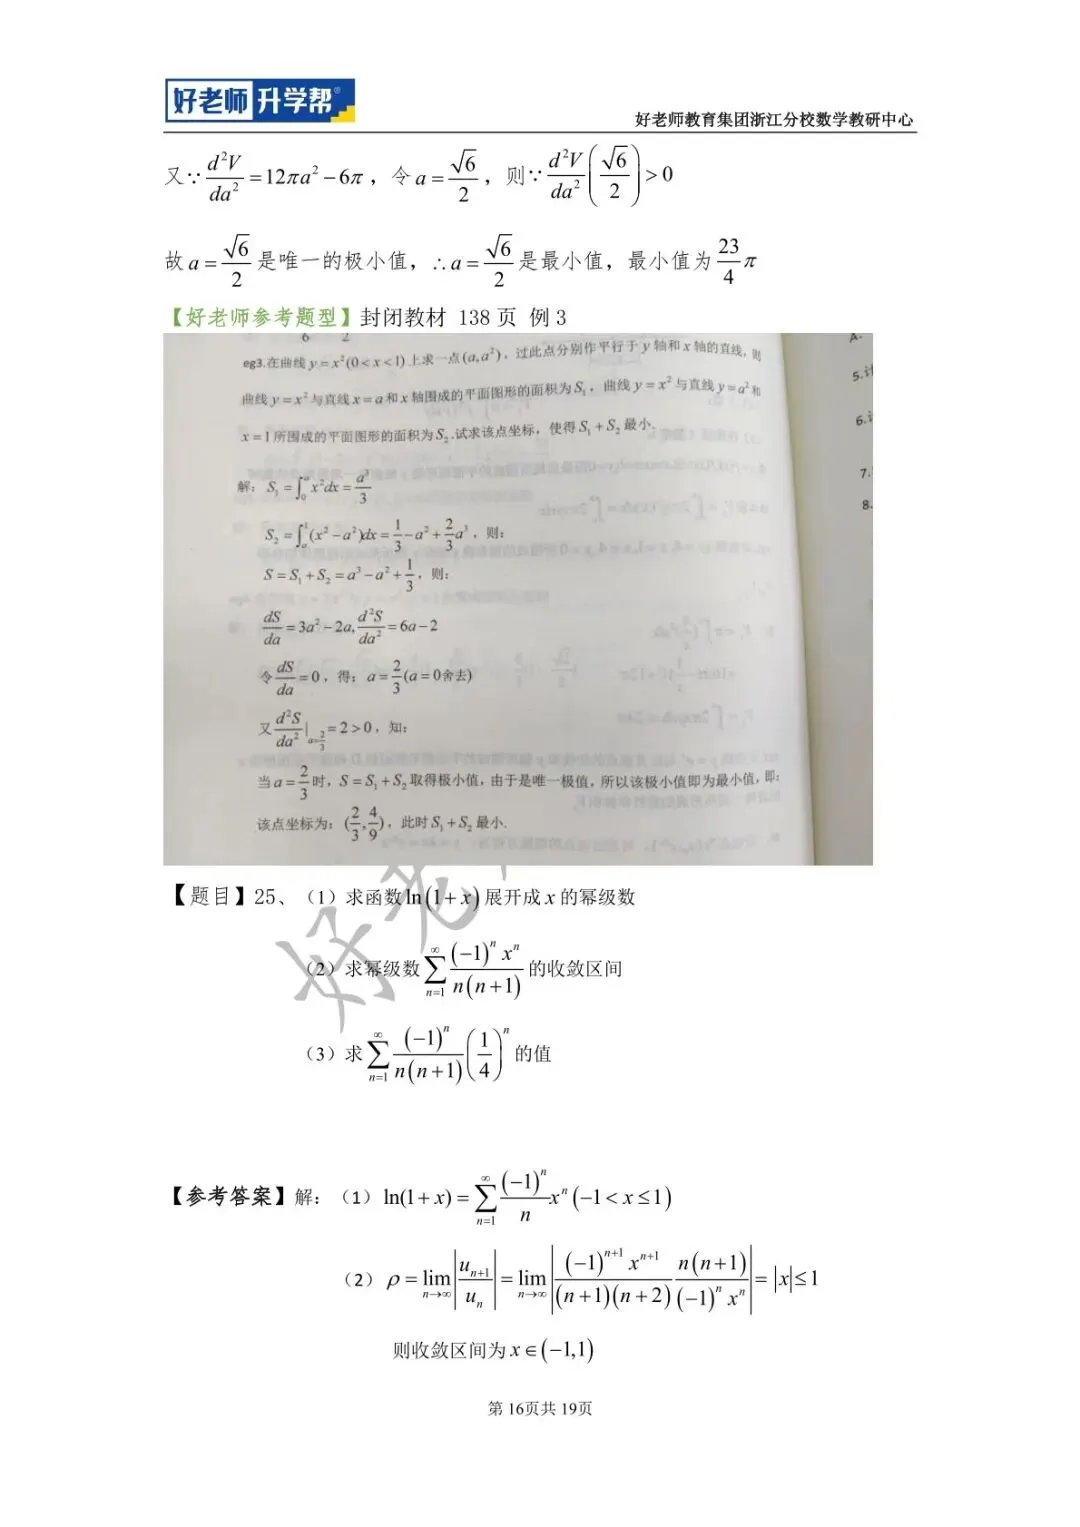 好老师 升学帮
好老师教育集团浙江分校数学教研中心
又∵ d²V/da² = 12πa² − 6π，令 a = √6/2，则∵ d²V/da² (√6/2) > 0
故 a = √6/2 是唯一的极小值，∴ a = √6/2 是最小值，最小值为 23/4 π
【好老师参考题型】封闭教材 138 页 例 3
eg3.在曲线 y = x² (0 < x < 1) 上求一点 (a, a²)，过此点分别作平行于 y 轴和 x 轴的直线，则
曲线 y = x² 与直线 x = a 和 x 轴围成的平面图形的面积为 S₁，曲线 y = x² 与直线 y = a² 和
x = 1 所围成的平面图形的面积为 S₂.试求该点坐标，使得 S₁ + S₂ 最小.
解：S₁ = ∫₀ᵃ x²dx = a³/3
S₂ = ∫ₐ¹ (x² − a²)dx = 1/3 − a² + 2/3 a³，则：
S = S₁ + S₂ = a³ − a² + 1/3，则：
dS/da = 3a² − 2a, d²S/da² = 6a − 2
令 dS/da = 0，得：a = 2/3 (a = 0舍去)
又 d²S/da² |a=2/3 = 2 > 0，知：
当 a = 2/3 时，S = S₁ + S₂ 取得极小值，由于是唯一极值，所以该极小值即为最小值，即：
该点坐标为：(2/3, 4/9)，此时 S₁ + S₂ 最小.
A.
5.计
6.
7.
8.
好老
【题目】25、（1）求函数 ln(1+x) 展开成 x 的幂级数
（2）求幂级数 ∑_{n=1}^{∞} (−1)ⁿ xⁿ / n(n+1) 的收敛区间
（3）求 ∑_{n=1}^{∞} (−1)ⁿ / n(n+1) (1/4)ⁿ 的值
【参考答案】解：（1）ln(1+x) = ∑_{n=1}^{∞} (−1)ⁿ/n xⁿ (−1 < x ≤ 1)
（2）ρ = lim_{n→∞} |u_{n+1}/u_n| = lim_{n→∞} |(−1)ⁿ⁺¹ xⁿ⁺¹ / (n+1)(n+2) · n(n+1) / (−1)ⁿ xⁿ| = |x| ≤ 1
则收敛区间为 x ∈ (−1,1)
第 16页共 19页